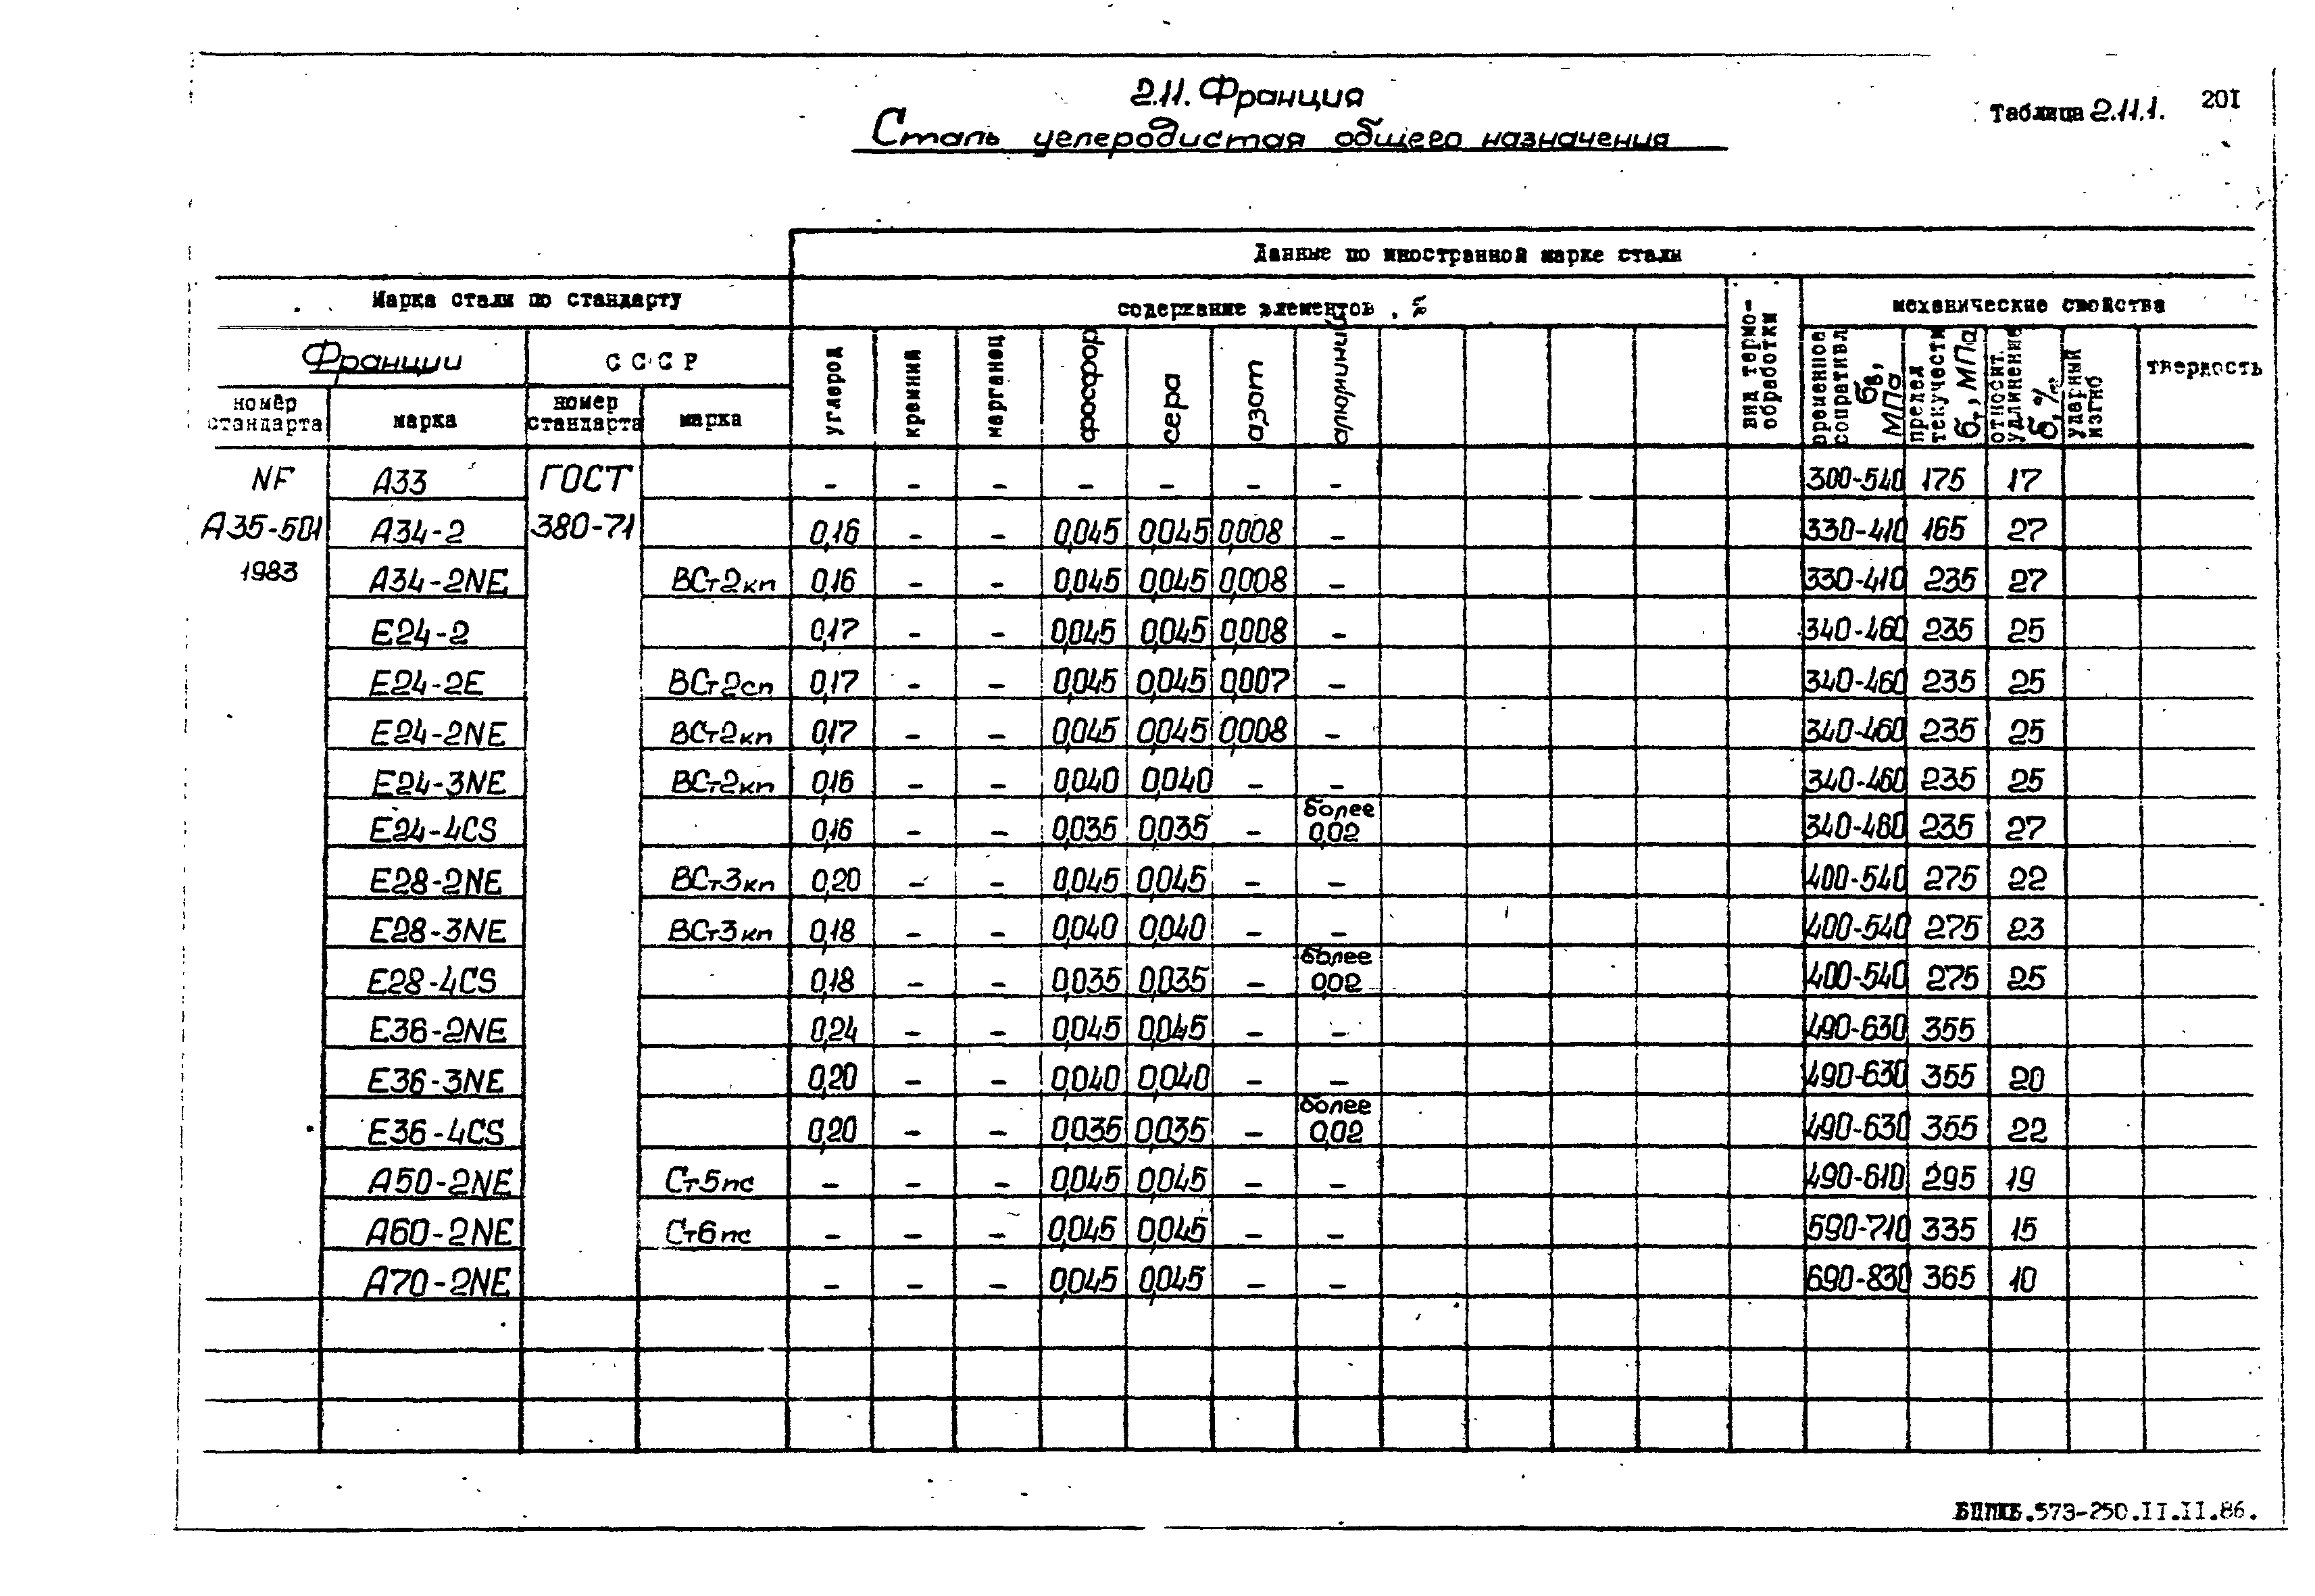 2.11. Франция
Сталь углеродистая общего назначения
Таблица 2.11.1.
201
Данные по иностранной марке стали
Марка стали по стандарту
содержание элементов, %
вид термо-
обработки
механические свойства
Франции
СССР
углерод
кремний
марганец
фосфор
сера
азот
алюминий
временное
сопративл
бв,
МПа
предел
текучести
бт, МПа
относит.
удлинение
б, %
ударный
изгиб
твердость
номер
стандарта
марка
номер
стандарта
марка
NF А33 ГОСТ - - - - - - - 300-540 175 17
А35-501 А34-2 380-71 0,16 - - 0,045 0,045 0,008 - 330-410 165 27
1983 А34-2NE ВСт2кп 0,16 - - 0,045 0,045 0,008 - 330-410 235 27
Е24-2 0,17 - - 0,045 0,045 0,008 - 340-460 235 25
Е24-2Е ВСт2сп 0,17 - - 0,045 0,045 0,007 - 340-460 235 25
Е24-2NE ВСт2кп 0,17 - - 0,045 0,045 0,008 - 340-460 235 25
Е24-3NE ВСт2кп 0,16 - - 0,040 0,040 - - 340-460 235 25
Е24-4CS 0,16 - - 0,035 0,035 - более 0,02 340-460 235 27
Е28-2NE ВСт3кп 0,20 - - 0,045 0,045 - - 400-540 275 22
Е28-3NE ВСт3кп 0,18 - - 0,040 0,040 - - 400-540 275 23
Е28-4CS 0,18 - - 0,035 0,035 - более 0,02 400-540 275 25
Е36-2NE 0,24 - - 0,045 0,045 - - 490-630 355
Е36-3NE 0,20 - - 0,040 0,040 - - 490-630 355 20
Е36-4CS 0,20 - - 0,035 0,035 - более 0,02 490-630 355 22
А50-2NE Ст5пс - - - 0,045 0,045 - - 490-610 295 19
А60-2NE Ст6пс - - - 0,045 0,045 - - 590-710 335 15
А70-2NE - - - 0,045 0,045 - - 690-830 365 10
.573-250.II.II.86.